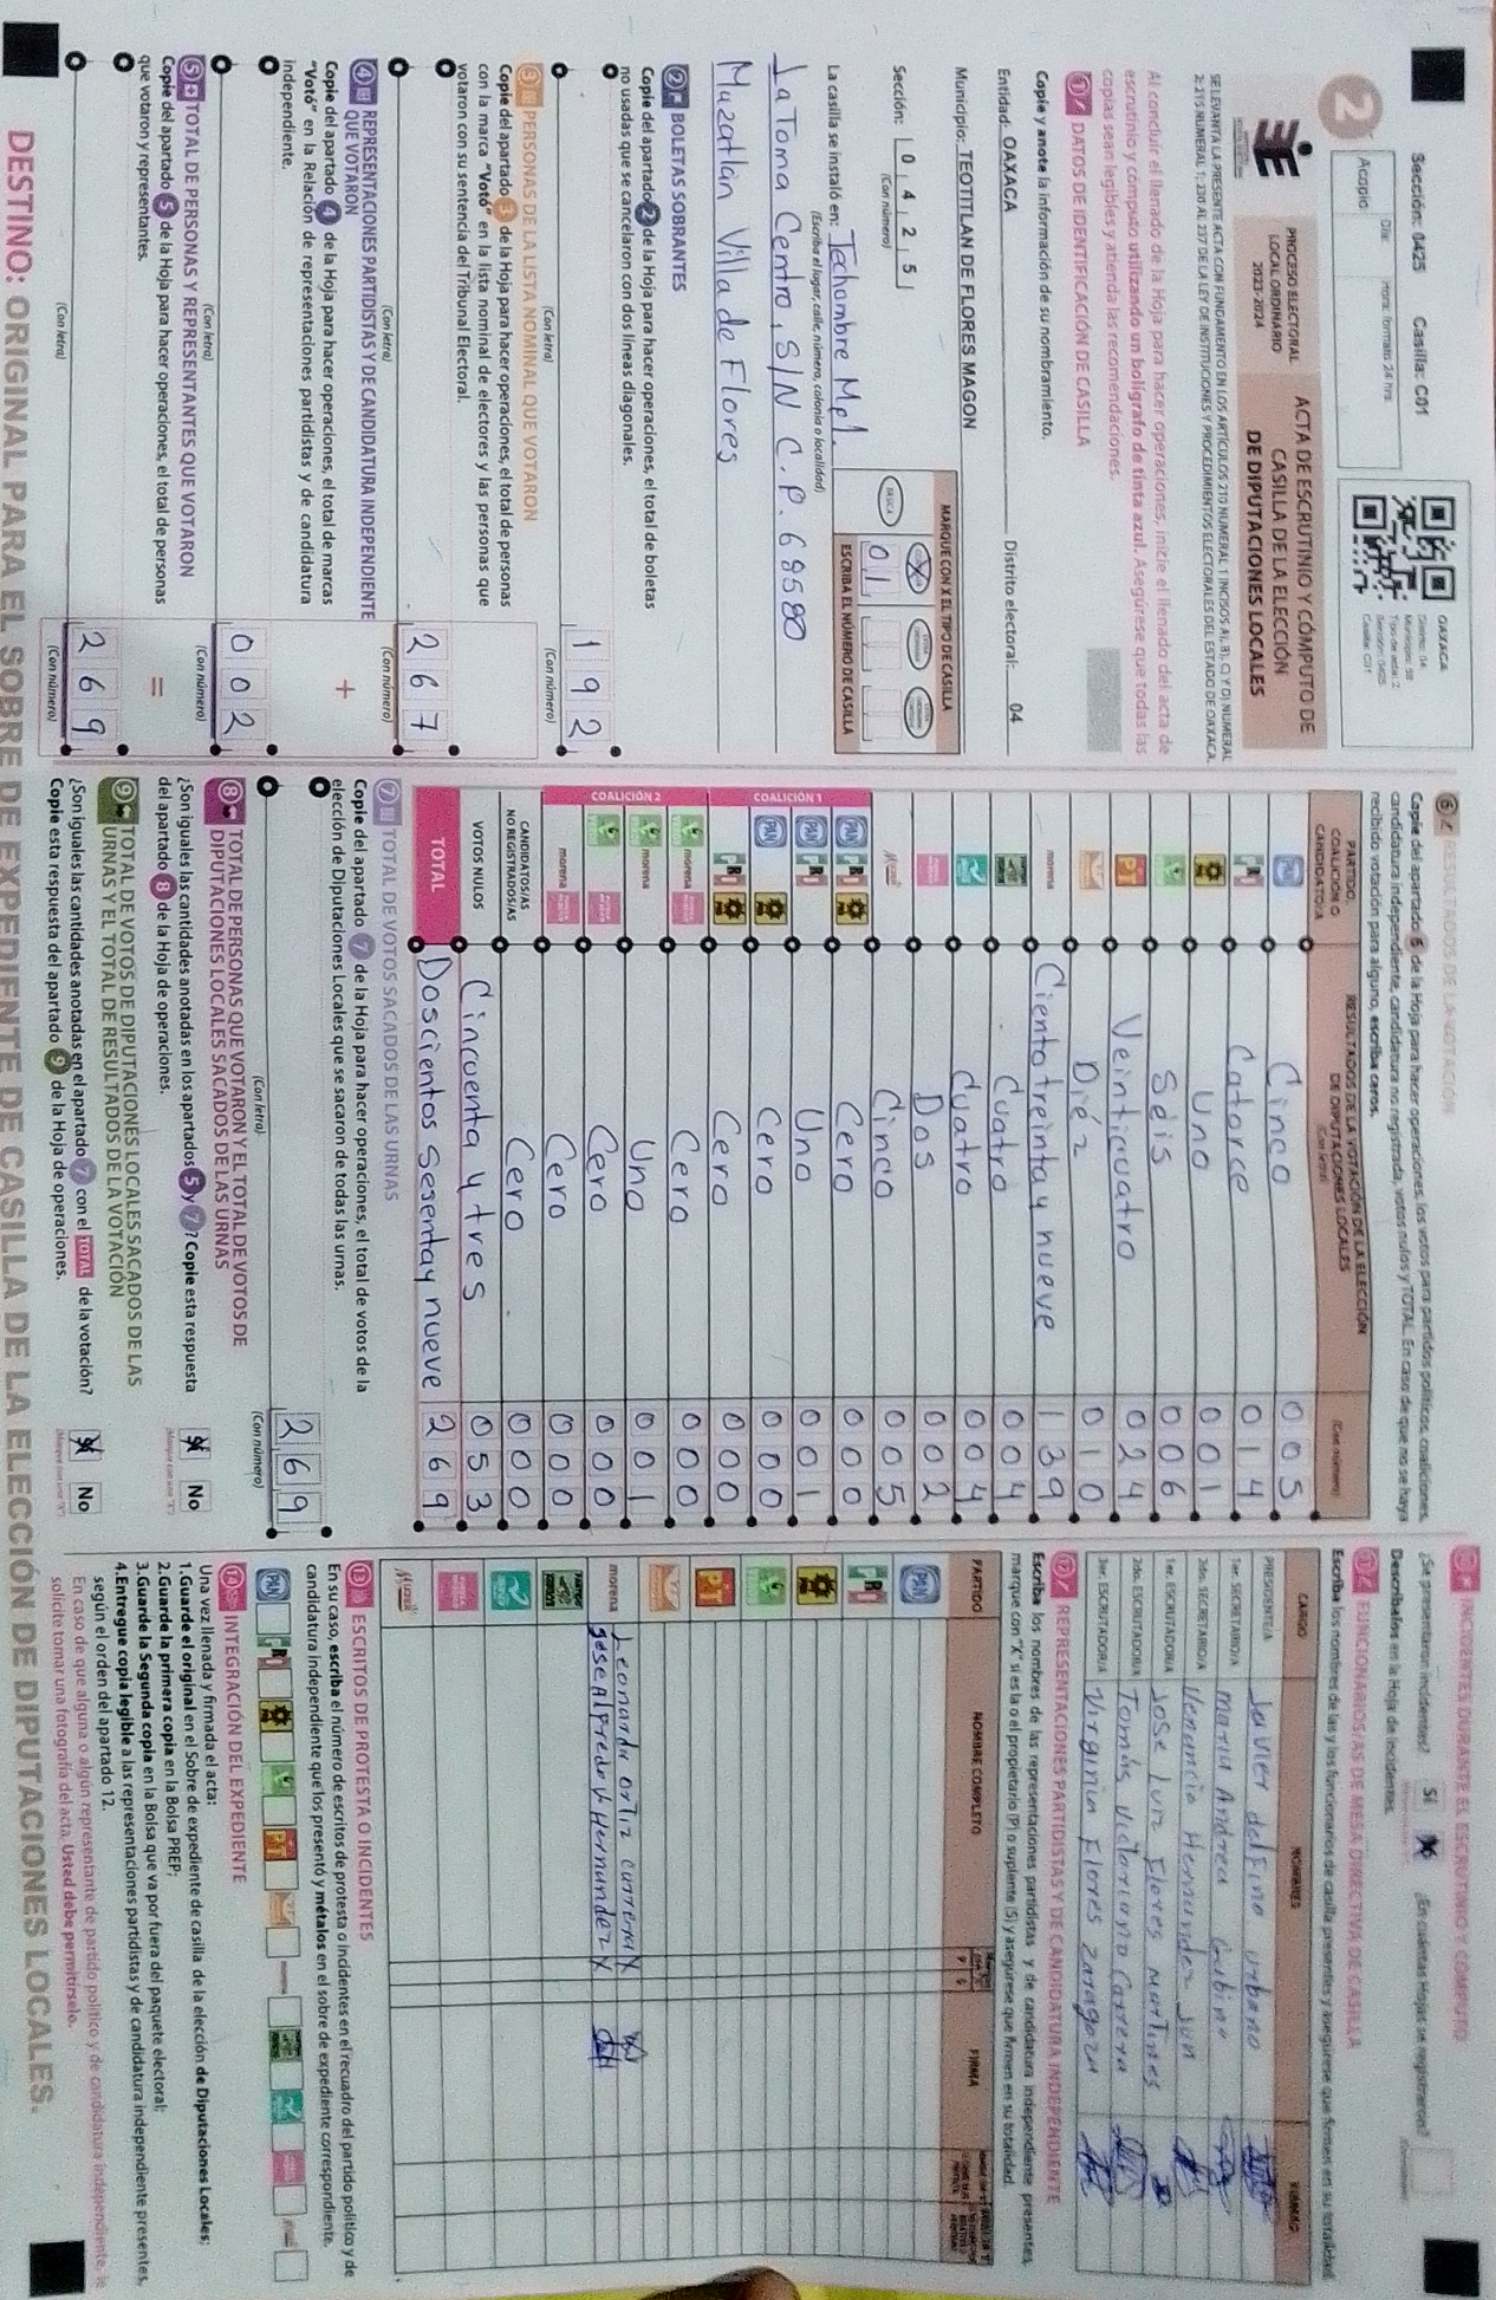 Sección: 0425 Casilla: C01
2
Acopio:
Día:
Hora: (formato 24 hrs.
OAXACA
Casilla: C01
PROCESO ELECTORAL
LOCAL ORDINARIO
2023-2024
ACTA DE ESCRUTINIO Y CÓMPUTO DE
CASILLA DE LA ELECCIÓN
DE DIPUTACIONES LOCALES
Al concluir el llenado de la Hoja para hacer operaciones, inicie el llenado del acta de
escrutinio y cómputo utilizando un bolígrafo de tinta azul. Asegúrese que todas las
copias sean legibles y atienda las recomendaciones.
1 DATOS DE IDENTIFICACIÓN DE CASILLA
Copie y anote la información de su nombramiento.
Entidad: OAXACA Distrito electoral: 04
Municipio: TEOTITLAN DE FLORES MAGON
Sección: 0 4 2 5
(Con número)
MARQUE CON X EL TIPO DE CASILLA
BÁSICA
X
01
ESCRIBA EL NÚMERO DE CASILLA
La casilla se instaló en: Techombre Mpl.
(Escriba el lugar, calle, número, colonia o localidad)
La Toma Centro, S/N C.P. 68580
Mazatlan Villa de Flores
2 BOLETAS SOBRANTES
Copie del apartado 2 de la Hoja para hacer operaciones, el total de boletas
no usadas que se cancelaron con dos líneas diagonales.
192
(Con letra) (Con número)
3 PERSONAS DE LA LISTA NOMINAL QUE VOTARON
Copie del apartado 3 de la Hoja para hacer operaciones, el total de personas
con la marca "Votó" en la lista nominal de electores y las personas que
votaron con su sentencia del Tribunal Electoral.
267
(Con letra) (Con número)
4 REPRESENTACIONES PARTIDISTAS Y DE CANDIDATURA INDEPENDIENTE
QUE VOTARON
+
Copie del apartado 4 de la Hoja para hacer operaciones, el total de marcas
"Votó" en la Relación de representaciones partidistas y de candidatura
independiente.
002
(Con letra) (Con número)
5 TOTAL DE PERSONAS Y REPRESENTANTES QUE VOTARON
=
Copie del apartado 5 de la Hoja para hacer operaciones, el total de personas
que votaron y representantes.
269
(Con letra) (Con número)
6 RESULTADOS DE LA VOTACIÓN
Copie del apartado 6 de la Hoja para hacer operaciones, los votos para partidos políticos, coaliciones,
candidatura independiente, candidatura no registrada, votos nulos y TOTAL. En caso de que no se haya
recibido votación para alguno, escriba ceros.
PARTIDO,
COALICIÓN O
CANDIDATO/A
RESULTADOS DE LA VOTACIÓN DE LA ELECCIÓN
DE DIPUTACIONES LOCALES
(Con letra) (Con número)
PAN Cinco 005
PRI Catorce 014
PRD Uno 001
Seis 006
PT Veinticuatro 024
Diéz 010
morena Ciento treinta y nueve 139
Cuatro 004
Cuatro 004
Dos 002
Cinco 005
COALICIÓN 1
PAN PRI PRD Cero 000
PAN PRI Uno 001
PAN PRD Cero 000
PRI PRD Cero 000
COALICIÓN 2
morena Cero 000
morena Uno 001
Cero 000
morena Cero 000
CANDIDATOS/AS
NO REGISTRADOS/AS Cero 000
VOTOS NULOS Cincuenta y tres 053
TOTAL Doscientos Sesenta y nueve 269
7 TOTAL DE VOTOS SACADOS DE LAS URNAS
Copie del apartado 7 de la Hoja para hacer operaciones, el total de votos de la
elección de Diputaciones Locales que se sacaron de todas las urnas.
269
(Con letra) (Con número)
8 TOTAL DE PERSONAS QUE VOTARON Y EL TOTAL DE VOTOS DE
DIPUTACIONES LOCALES SACADOS DE LAS URNAS
¿Son iguales las cantidades anotadas en los apartados 5 y 7? Copie esta respuesta
del apartado 8 de la Hoja de operaciones.
Sí No
9 TOTAL DE VOTOS DE DIPUTACIONES LOCALES SACADOS DE LAS
URNAS Y EL TOTAL DE RESULTADOS DE LA VOTACIÓN
¿Son iguales las cantidades anotadas en el apartado 7 con el TOTAL de la votación?
Copie esta respuesta del apartado 9 de la Hoja de operaciones.
Sí No
INCIDENTES DURANTE EL ESCRUTINIO Y CÓMPUTO
¿Se presentaron incidentes? Sí ¿En cuántas Hojas se registraron?
Descríbalos en la Hoja de incidentes.
11 FUNCIONARIOS/AS DE MESA DIRECTIVA DE CASILLA
Escriba los nombres de las y los funcionarios de casilla presentes y asegúrese que firmen en su totalidad.
CARGO NOMBRES FIRMAS
PRESIDENTE/A Javier delfino urbano
1er. SECRETARIO/A maria Andrea Gabino
2do. SECRETARIO/A Venancio Hernandez Juan
1er. ESCRUTADOR/A Jose luiz Flores martines
2do. ESCRUTADOR/A Tomás Victoriano Carrera
3er. ESCRUTADOR/A Virginia Flores zaragoza
12 REPRESENTACIONES PARTIDISTAS Y DE CANDIDATURA INDEPENDIENTE
Escriba los nombres de las representaciones partidistas y de candidatura independiente presentes,
marque con "X" si es la o el propietario (P) o suplente (S) y asegúrese que firmen en su totalidad.
PARTIDO NOMBRE COMPLETO P S FIRMA
PAN
PRI
PRD
PT
morena Leonardo ortiz carrera X
Jose alfredo Hernandez X
13 ESCRITOS DE PROTESTA O INCIDENTES
En su caso, escriba el número de escritos de protesta o incidentes en el recuadro del partido político y de
candidatura independiente que los presentó y métalos en el sobre de expediente correspondiente.
PAN PRI PRD PT morena
INTEGRACIÓN DEL EXPEDIENTE
Una vez llenada y firmada el acta:
1.Guarde el original en el Sobre de expediente de casilla de la elección de Diputaciones Locales;
2.Guarde la primera copia en la Bolsa PREP;
3.Guarde la Segunda copia en la Bolsa que va por fuera del paquete electoral;
4.Entregue copia legible a las representaciones partidistas y de candidatura independiente presentes,
según el orden del apartado 12.
En caso de que alguna o algún representante de partido político y de candidatura independiente, le
solicite tomar una fotografía del acta, Usted debe permitírselo.
DESTINO: ORIGINAL PARA EL SOBRE DE EXPEDIENTE DE CASILLA DE LA ELECCIÓN DE DIPUTACIONES LOCALES.